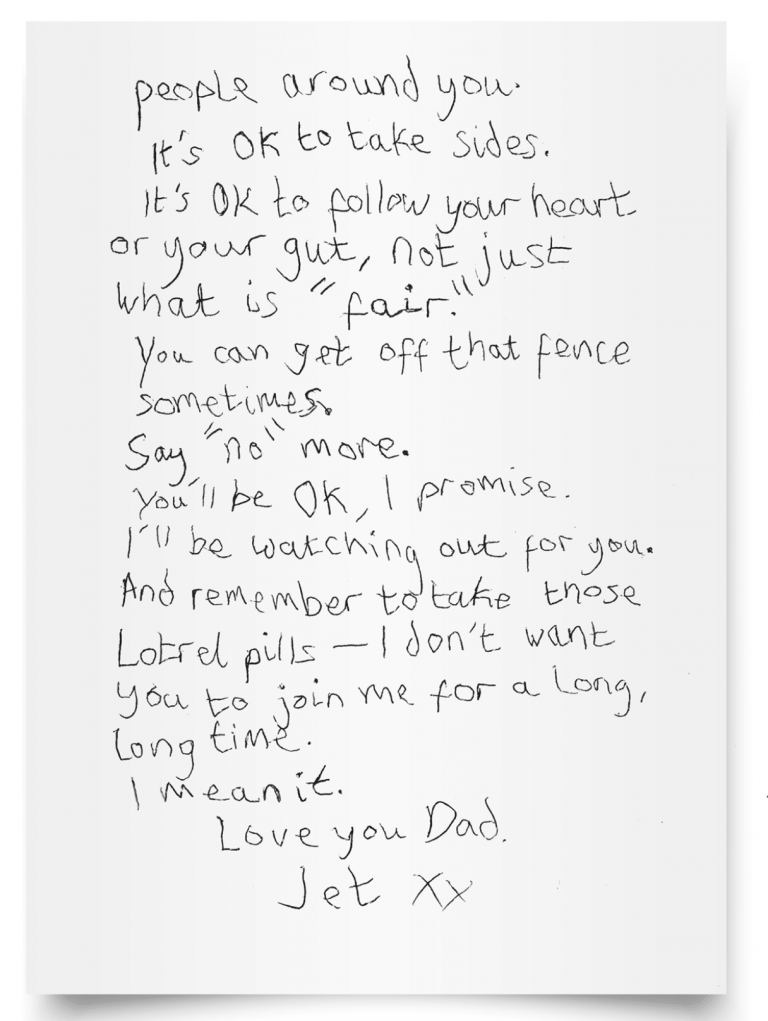 people around you.
It's OK to take sides.
It's OK to follow your heart
or your gut, not just
what is "fair."
You can get off that fence
sometimes.
Say "no" more.
You'll be OK, I promise.
I'll be watching out for you.
And remember to take those
Lotrel pills – I don't want
you to join me for a long,
long time.
I mean it.
Love you Dad.
Jet xx